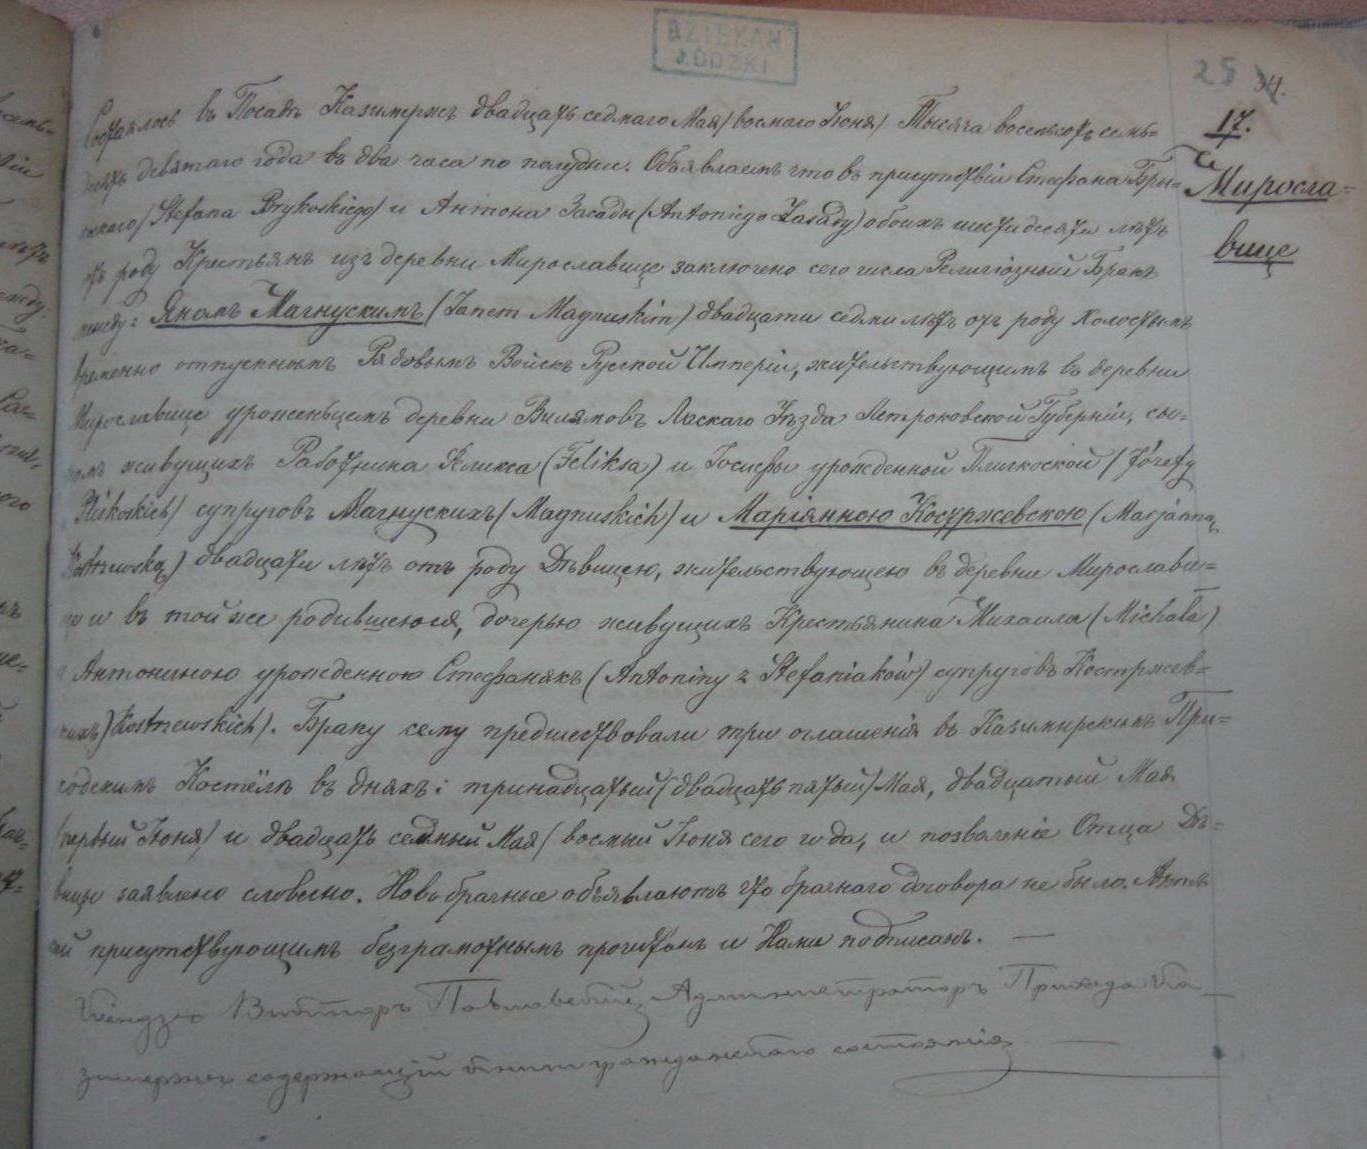 DZIEKAN
ŁÓDZKI
25 34.
17.
Миросла=
вице
Состоялось въ Посадѣ Казимержъ двадцать седмаго Мая/восмаго Іюня/ Тысяча восемьсотъ семь=
десятъ девятаго года въ два часа по полудни. Объявляемъ что въ присутствіи Стефана Бры=
скаго/Stefana Brykoskiego/ и Антона Засады (Antoniego Zasady) обоихъ шестидесяти лѣтъ
отъ роду Крестьянъ изъ деревни Мирославице заключено сего числа Религіозный Бракъ
между: Яномъ Магнускимъ (Janem Magnuskim) двадцати седми лѣтъ отъ роду холостымъ
временно отпускнымъ Рядовымъ Войскъ Русской Имперіи, жительствующимъ въ деревни
Мирославице уроженьцемъ деревни Вилямовъ Ласкаго Уѣзда Петроковской Губерніи, сы=
номъ живущихъ Работника Феликса (Feliksa) и Іосифы урожденной Пликоской /Józefy
Plikoskich/ супруговъ Магнускихъ/Magnuskich/ и Маріянною Костржевскою (Marjanną
Kostrzewską) двадцати лѣтъ отъ роду Дѣвицею, жительствующею въ деревни Мирослави=
це и въ той же родившеюся, дочерью живущихъ Крестьянина Михаила (Michała)
и Антониною урожденною Стефанякъ (Antoniny z Stefaniaków) супруговъ Костржев=
скихъ/Kostrzewskich). Браку сему предшествовали три оглашенія въ Казимирскимъ При=
ходскимъ Костёлѣ въ дняхъ: тринадцатый/двадцать пятый/ Мая, двадцатый Мая
/первый Іюня/ и двадцать седмый Мая/восмый Іюня сего года, и позволеніе Отца Дѣ=
вицы заявлено словесно. Новобрачные объявляютъ что брачнаго договора не было. Актъ
сей присутствующимъ безграмотнымъ прочитанъ и Нами подписанъ. —
Ксендзъ Викторъ Администраторъ Прихода Ка
зимержъ содержащій книги гражданскаго состоянія —